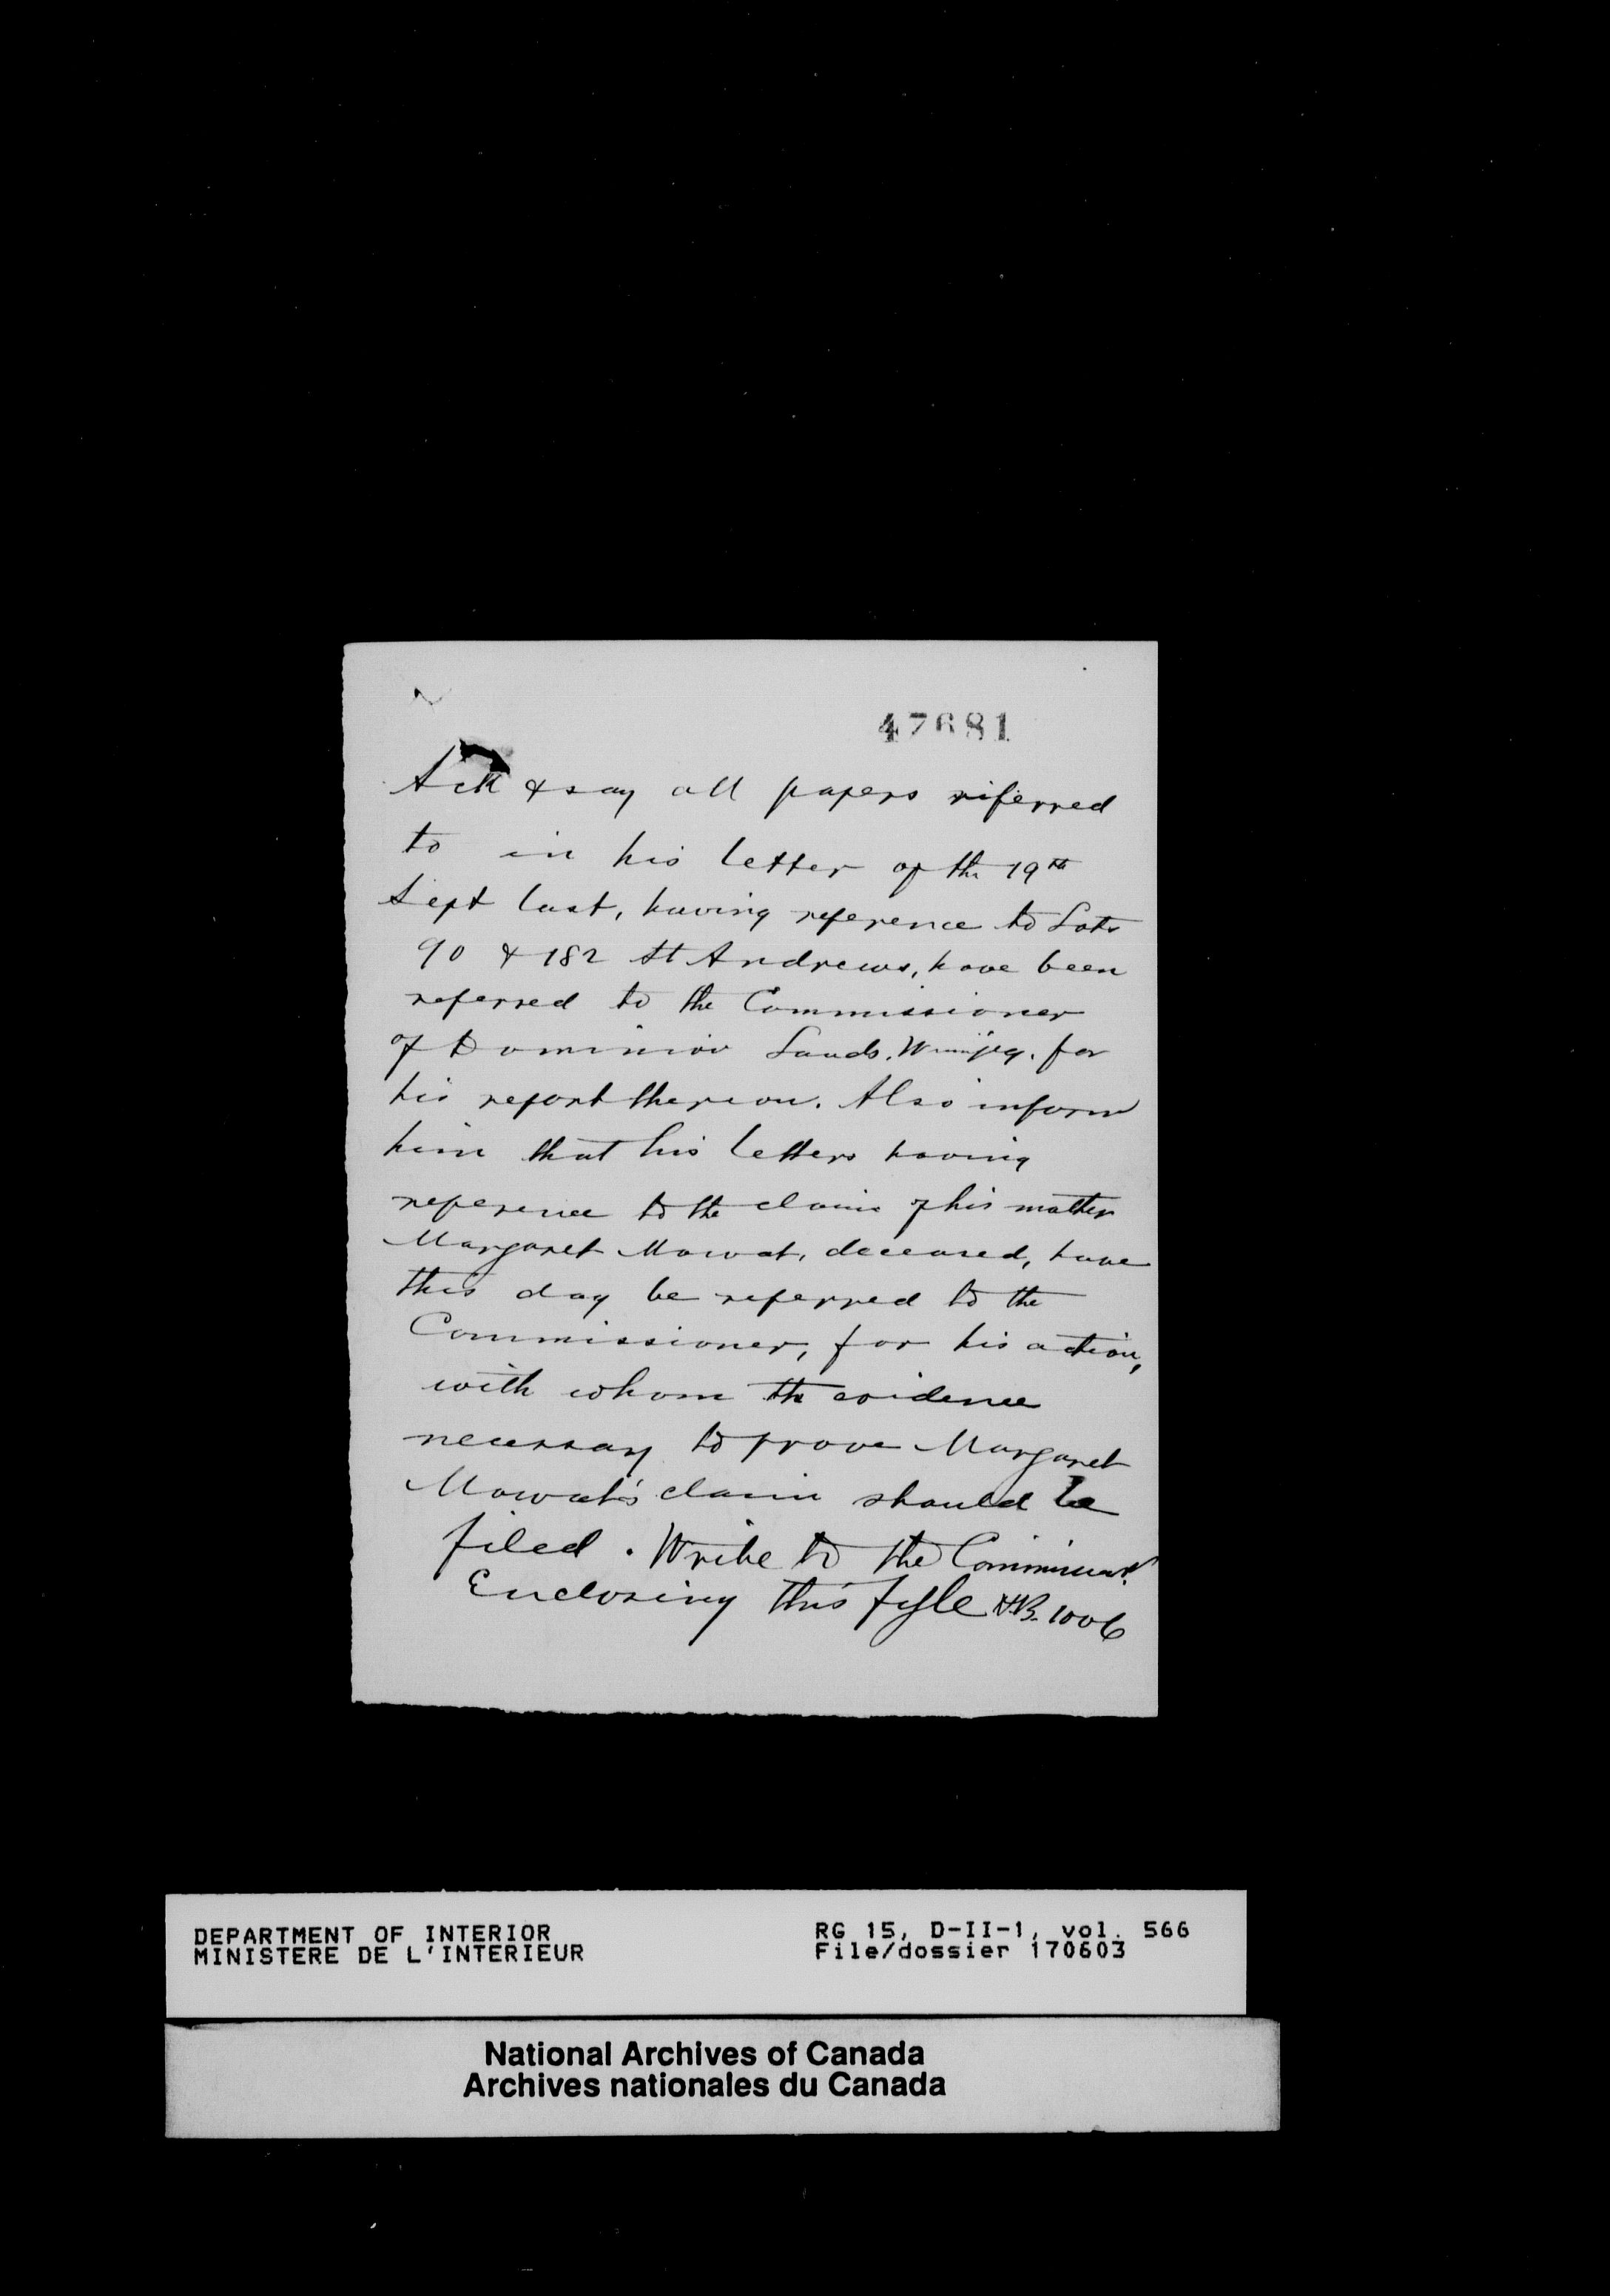 47681
Ack & say all papers referred
to in his letter of the 19th
Sept last, having reference to Lots
90 & 182 St Andrews, have been
referred to the Commissioner
of Dominion Lands. Winnipeg. for
his report thereon. Also inform
him that his letters having
reference to the claim of his mother
Margaret Mowat, deceased, have
this day be referred to the
Commissioner, for his action,
with whom the evidence
necessary to prove Margaret
Mowat's claim should be
filed. Write to the
Enclosing this fyle H.B. 1006
DEPARTMENT OF INTERIOR
MINISTERE DE L'INTERIEUR
RG 15, D-II-1, vol. 566
File/dossier 170603
National Archives of Canada
Archives nationales du Canada